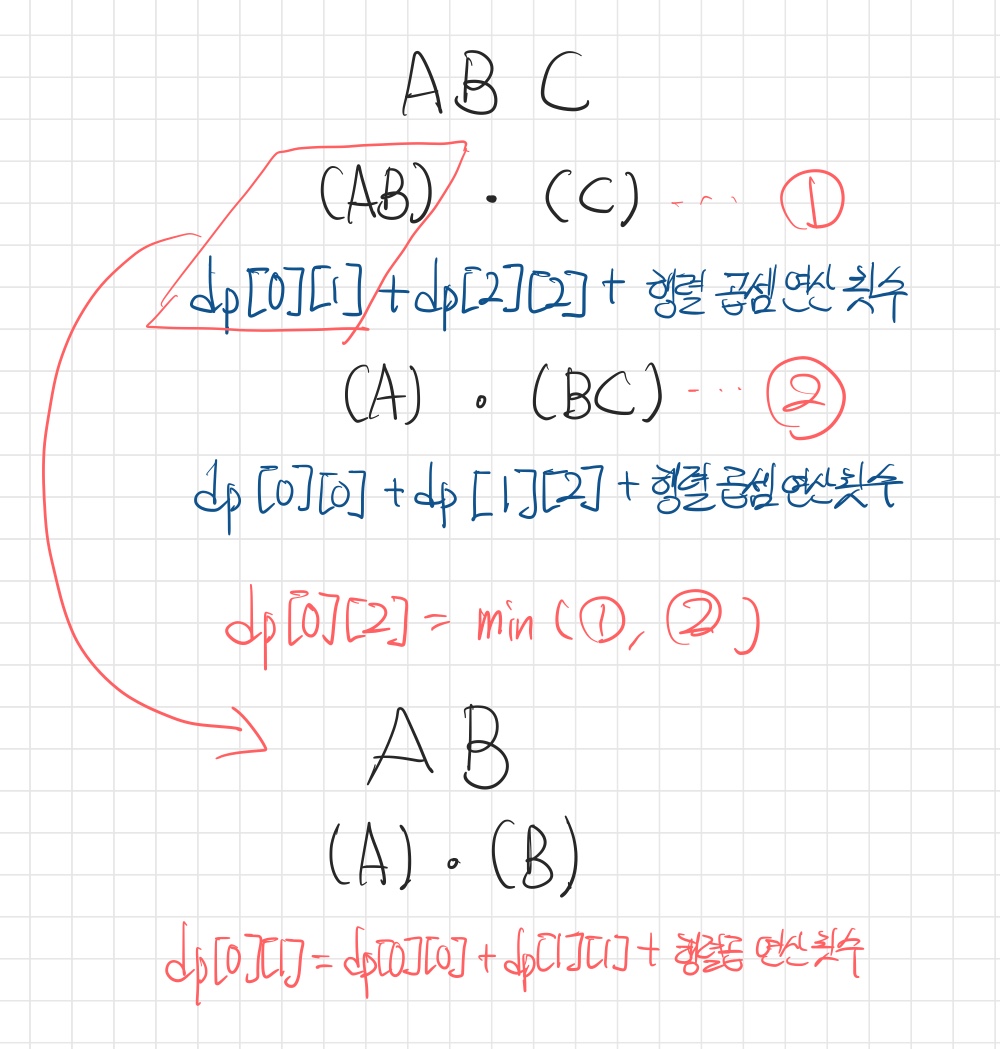 A B C
(AB) · (C) ... ①
dp[0][1] + dp[2][2] + 행렬 곱셈 연산 횟수
(A) · (BC) ... ②
dp[0][0] + dp[1][2] + 행렬 곱셈 연산 횟수
dp[0][2] = min (①, ②)
A B
(A) · (B)
dp[0][1] = dp[0][0] + dp[1][1] + 행렬곱 연산 횟수